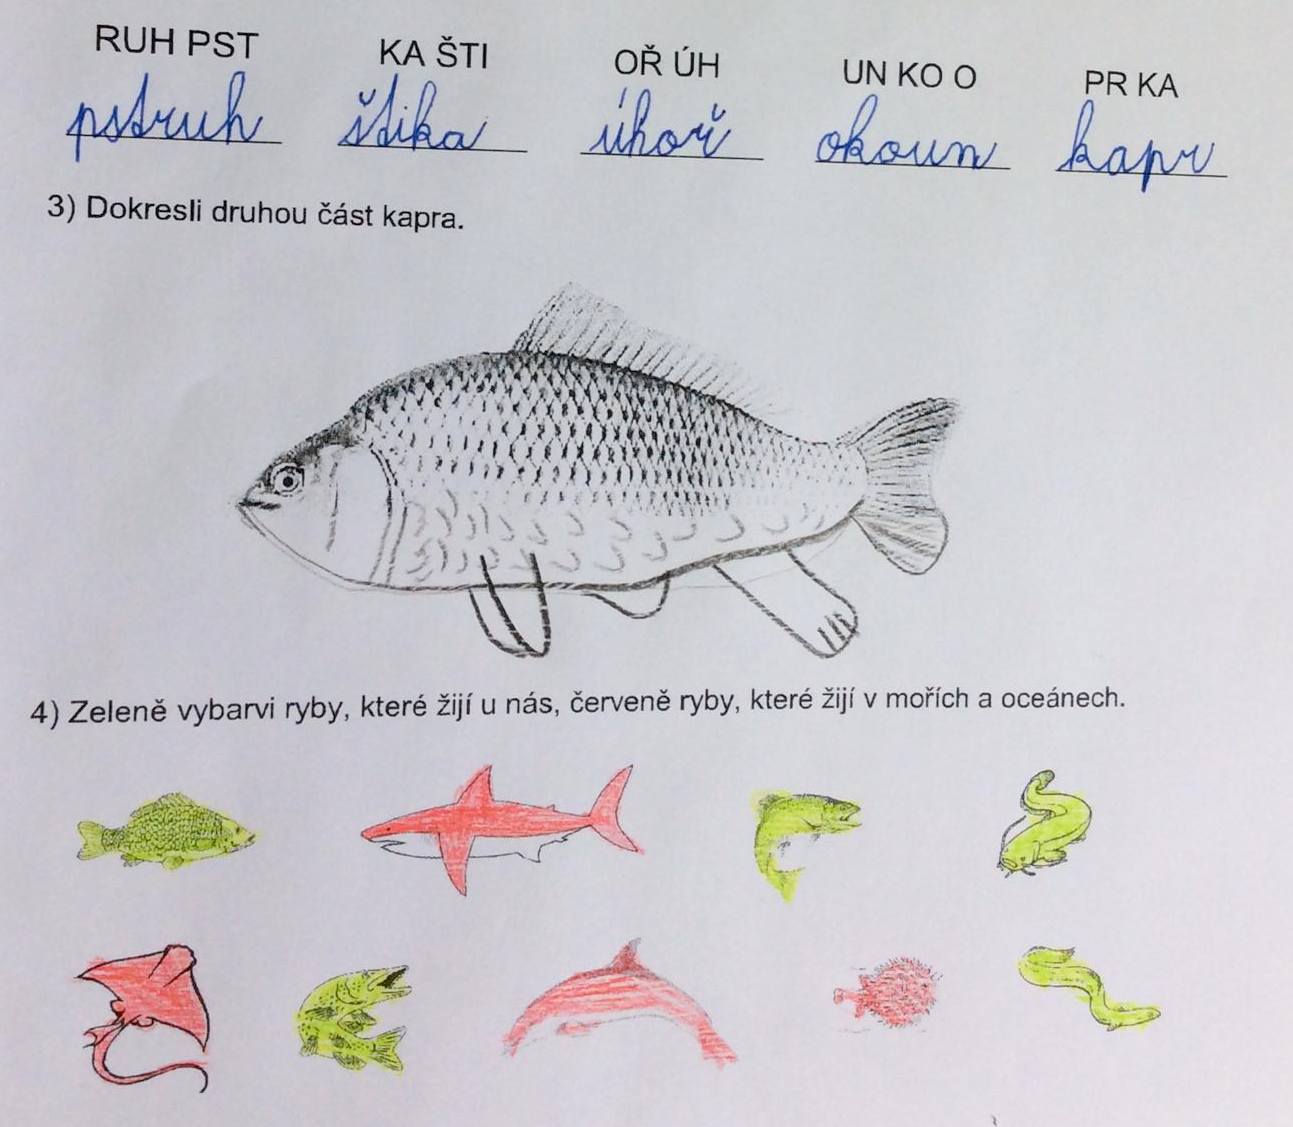 RUH PST KA ŠTI OŘ ÚH UN KO O PR KA
pstruh štika úhoř okoun kapr
3) Dokresli druhou část kapra.
4) Zeleně vybarvi ryby, které žijí u nás, červeně ryby, které žijí v mořích a oceánech.